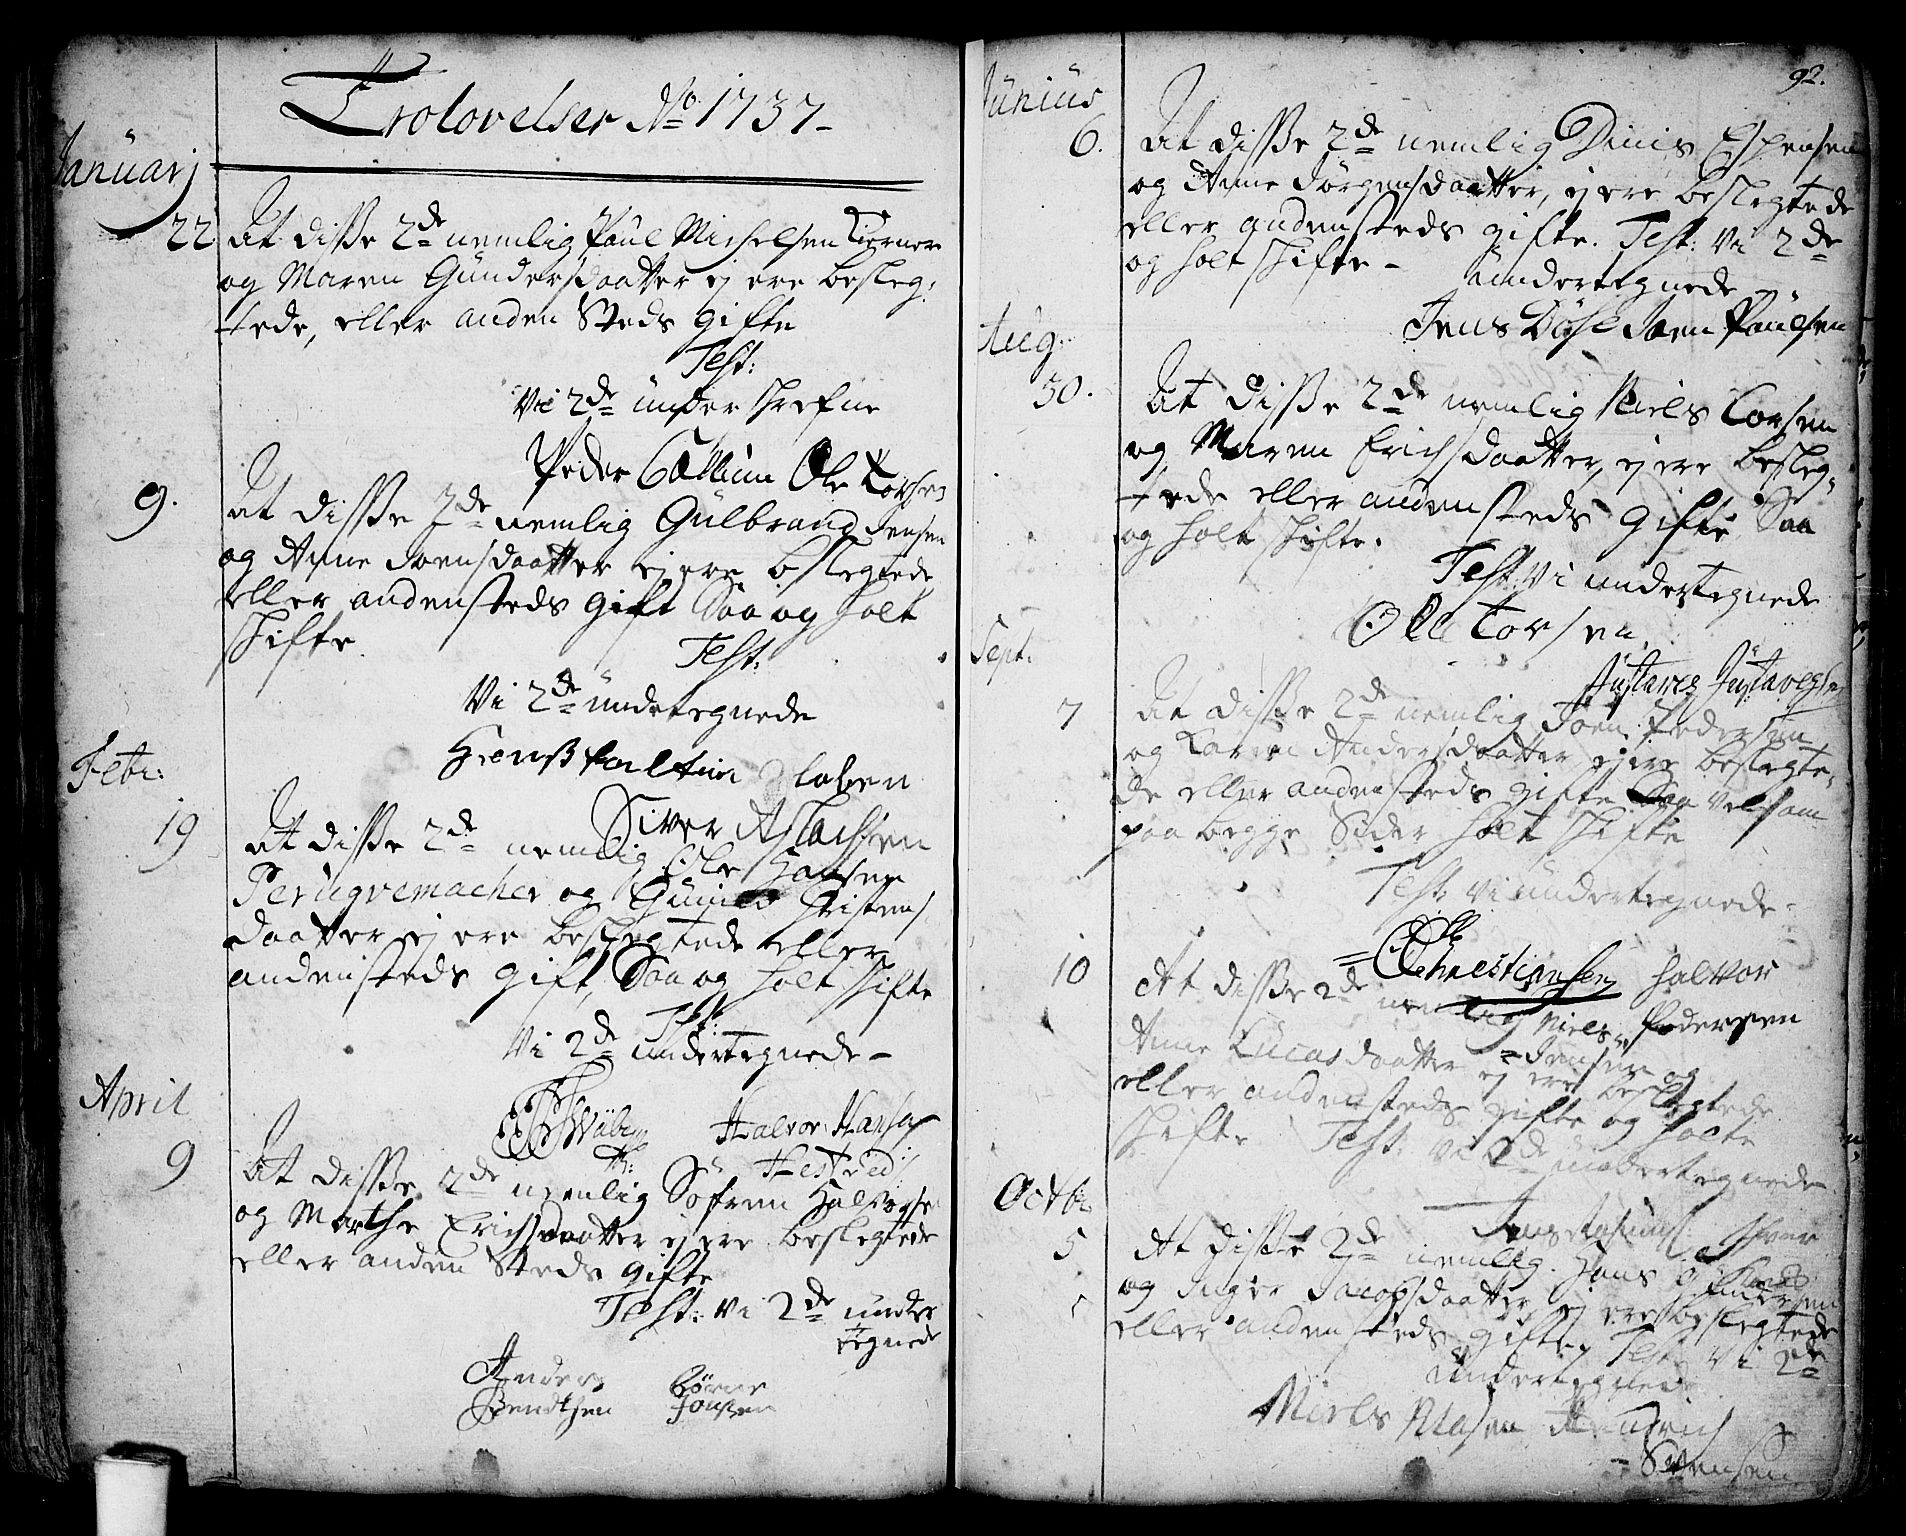 Trolovelser No 1737
Januarj
22 At disse 2de nemlig Paul Michelsen Tierner
og Maren Gundersdaatter ej ere besleg:
tede, eller anden Steds gifte
Test:
Vi 2de under skrefne
Peder Ole Torsen
9. At disse 2de nemlig Gulbrand Jensen
og Anne Joensdaatter ej ere beslegtede
eller andensteds gift Saa og holt
skifte
Test:
Vi 2de undetegnede
Olalsen
Siver Aslachsen
Febr:
19 At disse 2de nemlig Ole Hansen
Peruqvemacher og Christens
daatter ej ere beslegtede eller
andensteds gift, Saa og holt skifte
Test:
Vi 2de undertegnede
Halvor Hansøn
Hestved
April
9 At disse 2de nemlig Søfren Halvorse
og Marthe Erichsdaatter ej ere beslegtede
eller anden Steds gifte
Test: Vi 2de under
tegnede
Anders Børne
Bendtsen Jonsen
92.
Junius
6. At disse 2de nemlig Dinis Espensen
og Anne Jørgensdaatter, ej ere beslegtede
eller andensteds gifte. Test: Vi 2de
og holt skifte - undertegnede
Jens Joen Paulsen
Aug:
30. At disse 2de nemlig Niels Torsen
og Maren Erichsdaatter, ej ere besleg:
tede eller andensteds gifte Saa
og holt skifte.
Test: Vi undertegnede
Ole Torsen
Gustavus Gustavesen
Sept:
7 At disse 2de nemlig Joen Pedersen
og Karen Andersdaatter ej ere beslegte:
de eller andensteds gifte velsom
paa begge Sider holt skifte
Test: Vi undertegnede
Ole Chrestiansen Halvor
Pedersen
10 At disse 2de nemlig Niels
Jensen og
Anne Lucasdaatter ej ere beslegtede
eller andensteds gifte og holte
skifte Test: Vi 2de undertegnede
Jens
Octbr
5 At disse 2de nemlig Hans Andersen
og Inger Jacobsdaatter ej ere beslegtede
eller andensteds gifte, Test: Vi 2de
Undertegnede
Niels Hendrich
Svensen